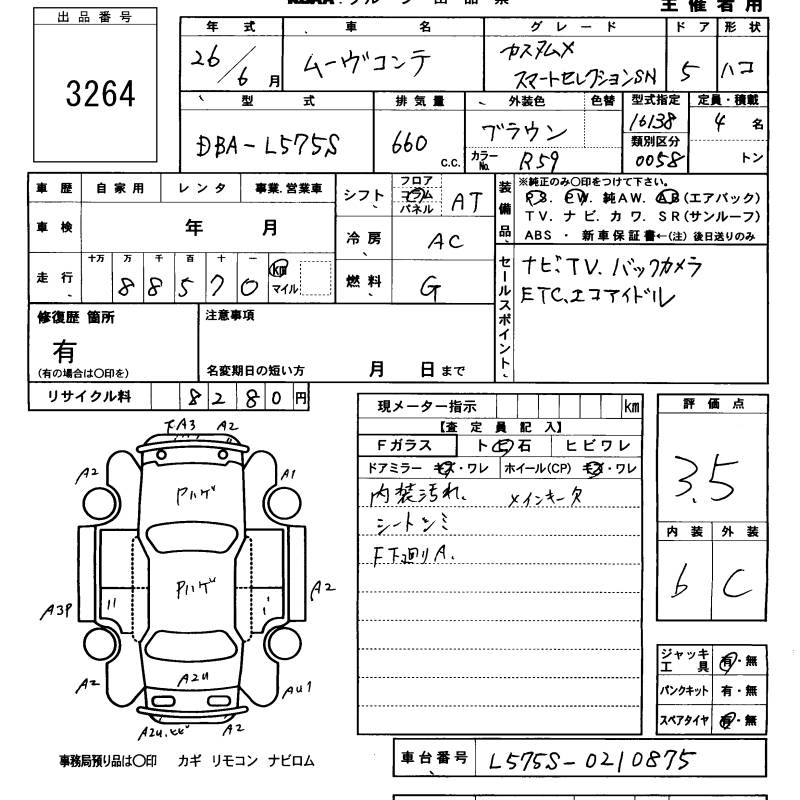 主催者用
出品番号
3264
年式 車名 グレード ドア 形状
26/6月 ムーヴコンテ カスタムX 5 ハコ
スマートセレクションSN
型式 排気量 外装色 色替 型式指定 定員・積載
DBA-L575S 660 c.c. ブラウン 16138 4 名
カラーNo. R59 類別区分 0058 トン
車歴 自家用 レンタ 事業.営業車
シフト フロア コラム パネル AT
装備品 ※純正のみ〇印をつけて下さい。
P.S. P.W. 純AW. AB(エアバック)
TV. ナビ. カワ. SR(サンルーフ)
ABS ・ 新車保証書←(注)後日送りのみ
車検 年 月
冷房 AC
走行 十万 万 千 百 十 一
88570 km マイル
燃料 G
セールスポイント
ナビ、TV、バックカメラ
ETC、エコアイドル
修復歴 箇所
有
(有の場合は〇印を)
注意事項
名変期日の短い方 月 日まで
リサイクル料 8280円
現メーター指示 km
【査定員記入】
Fガラス トビ石 ヒビワレ
ドアミラー キズ・ワレ ホイール(CP) キズ・ワレ
内装汚れ、 メインキーX
シートシミ
F下廻りA.
評価点
3.5
内装 外装
b C
ジャッキ工具 有・無
パンクキット 有・無
スペアタイヤ 有・無
下A3 A2
A2 A1
Pハゲ
Pハゲ
A3P A2
A2 A2U AU1
A2
事務局預り品は〇印 カギ リモコン ナビロム
車台番号 L575S-0210875